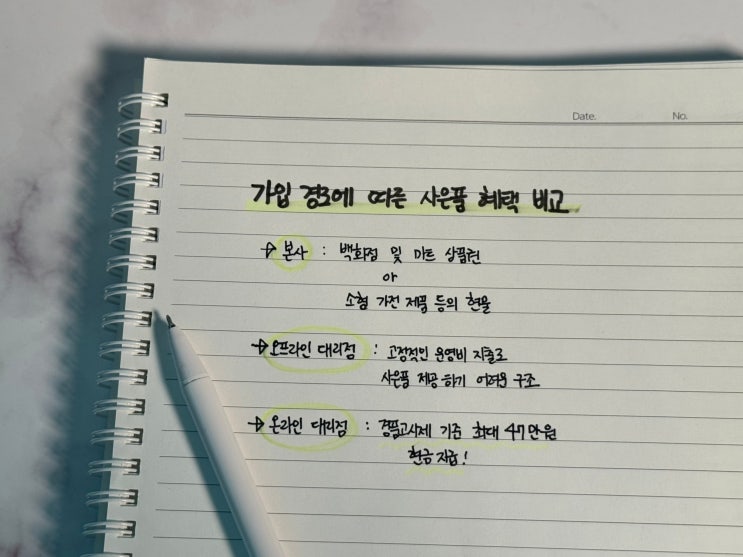 Date. No.
가입 경로에 따른 사은품 혜택 비교
→ 본사 : 백화점 및 마트 상품권
or
소형 가전 제품 등의 현물
→ 오프라인 대리점 : 고정적인 운영비 지출로
사은품 제공하기 어려운 구조
→ 온라인 대리점 : 경품고시제 기준 최대 47만원
현금 지급!